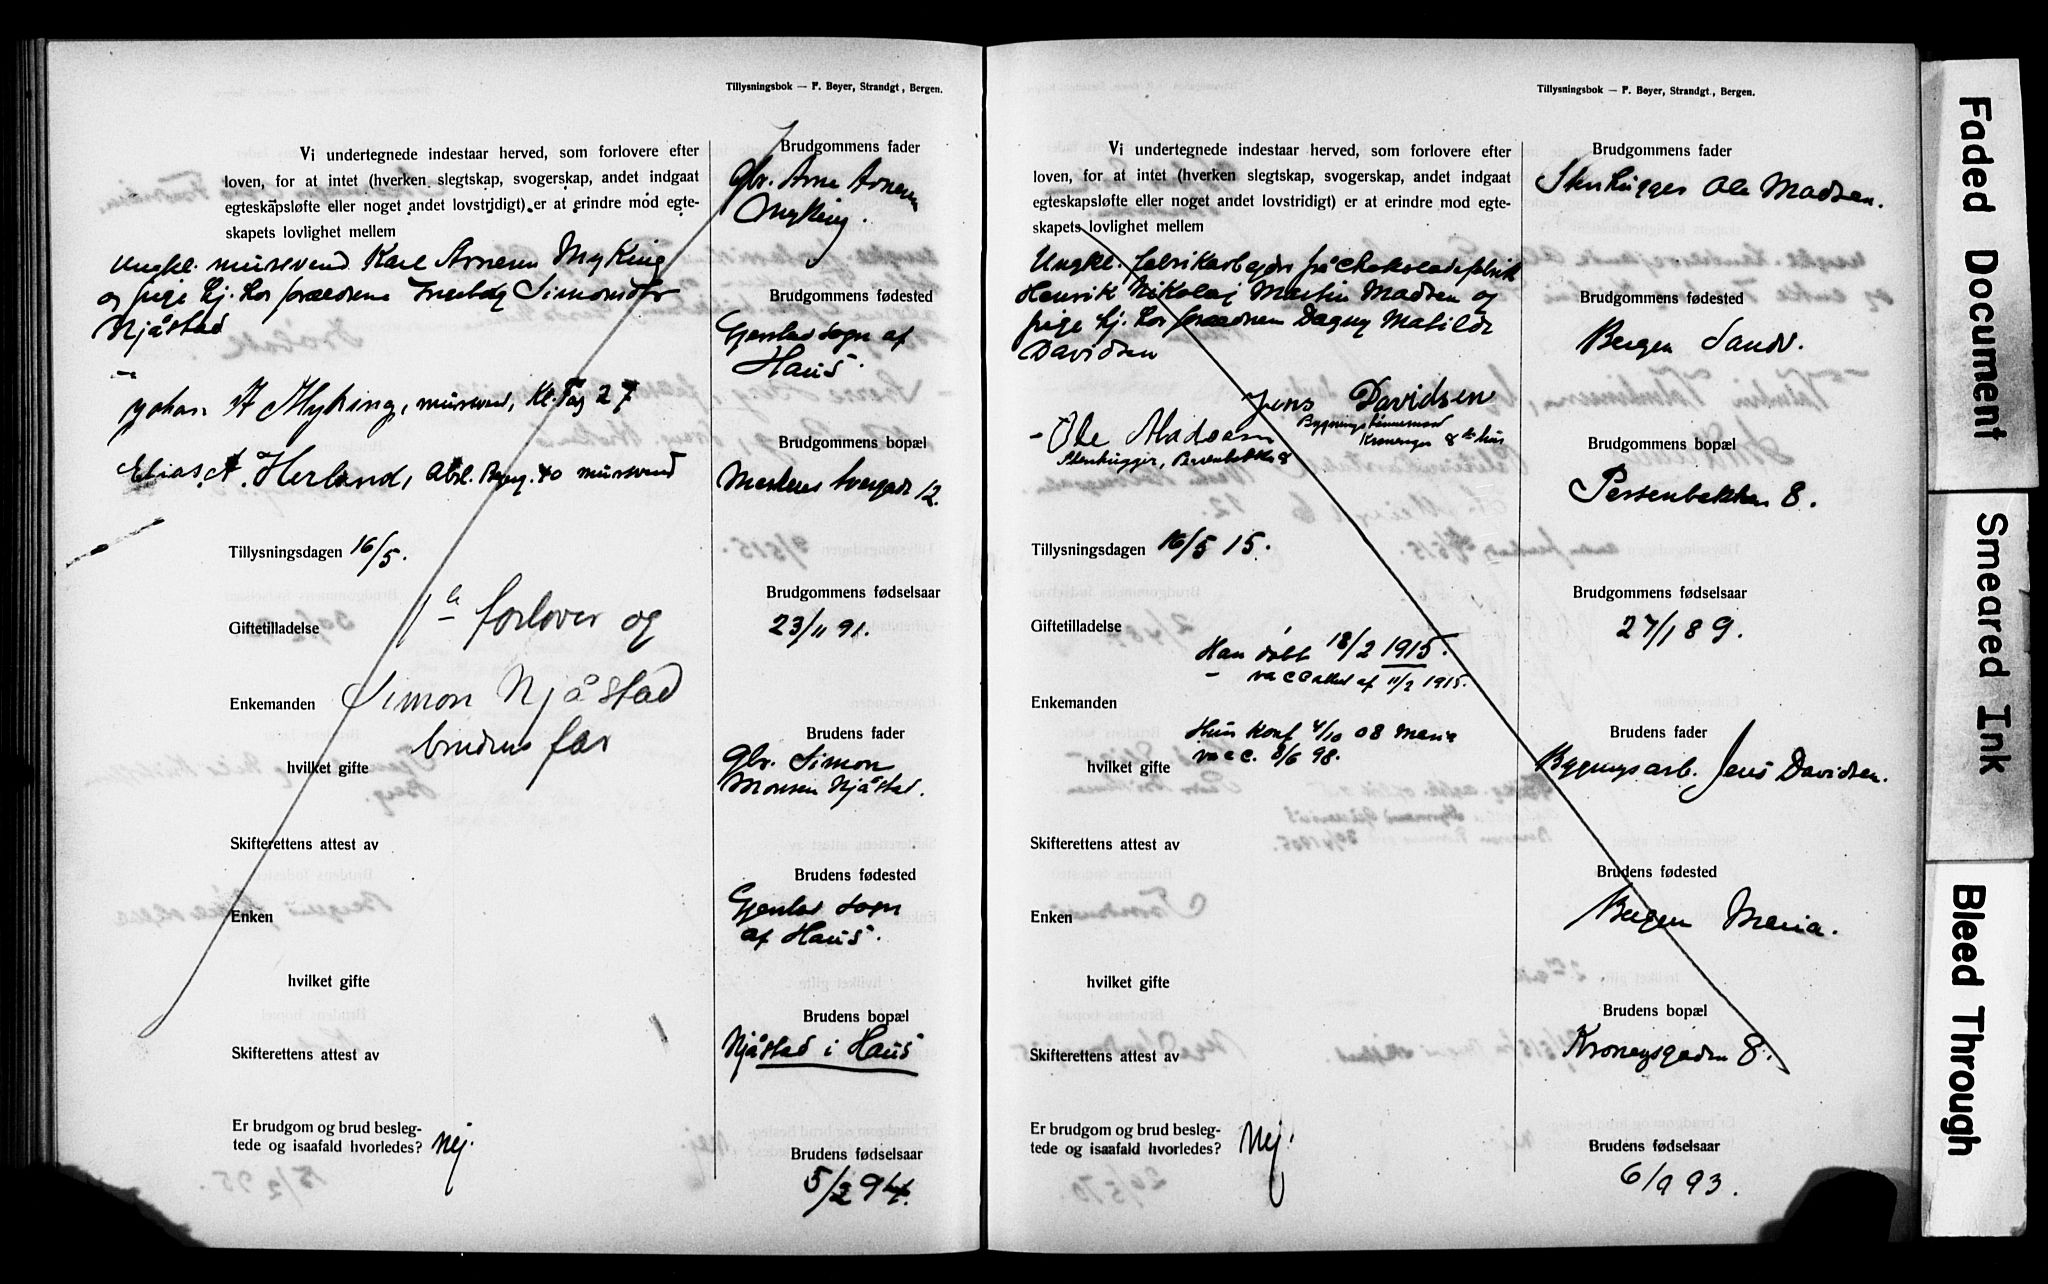 Tillysningsbok — F. Beyer, Strandgt., Bergen.
Vi undertegnede indestaar herved, som forlovere efter
loven, for at intet (hverken slegtskap, svogerskap, andet indgaat
egteskapsløfte eller noget andet lovstridigt) er at erindre mod egte-
skapets lovlighet mellem
Ungkl. mursvend Karl Arnesen Myking
og pige hj. hos forældrene Ingeborg Simonsdtr
Njåstad
Johan A Myking, mursvend, Kl.
27
Elias A. Herland, 40 mursvend
Tillysningsdagen 16/5.
Giftetilladelse
1ste forlover og
Enkemanden
Simon Njåstad
brudens far
hvilket gifte
Skifterettens attest av
Enken
hvilket gifte
Skifterettens attest av
Er brudgom og brud besleg-
tede og isaafald hvorledes? Nej.
Brudgommens fader
Gbr. Arne Arnesen
Myking.
Brudgommens fødested
Gjerstad sogn af
Haus.
Brudgommens bopæl
12.
Brudgommens fødselsaar
23/11 91.
Brudens fader
Gbr. Simon
Monsen Njåstad.
Brudens fødested
Gjerstad sogn
af Haus.
Brudens bopæl
Njåstad i Haus
Brudens fødselsaar
5/2 94.
Tillysningsbok — F. Beyer, Strandgt., Bergen.
Vi undertegnede indestaar herved, som forlovere efter
loven, for at intet (hverken slegtskap, svogerskap, andet indgaat
egteskapsløfte eller noget andet lovstridigt) er at erindre mod egte-
skapets lovlighet mellem
Ungkl. fabrikarbejder på chokoladefabrik
Henrik Nikolaj Martin Madsen og
pige hj. hos forældrene Dagny Matilde
Davidsen
Jens Davidsen
Bygningstømmermand
8
– Ole Madsen
Stenhugger, 8
Tillysningsdagen 16/5 15.
Giftetilladelse
Han døbt 18/2 1915.
– vacc attest af 11/2 1915.
Enkemanden
Hun konf 4/10 08 Maria
vacc. 8/6 98.
hvilket gifte
Skifterettens attest av
Enken
hvilket gifte
Skifterettens attest av
Er brudgom og brud besleg-
tede og isaafald hvorledes? Nej.
Brudgommens fader
Stenhugger Ole Madsen.
Brudgommens fødested
Bergen Sandv.
Brudgommens bopæl
Persenbakken 8.
Brudgommens fødselsaar
27/1 89.
Brudens fader
Bygningsarb. Jens Davidsen.
Brudens fødested
Bergen Maria.
Brudens bopæl
Kronengsgaden 8.
Brudens fødselsaar
6/9 93.
Faded Document
Smeared Ink
Bleed Through